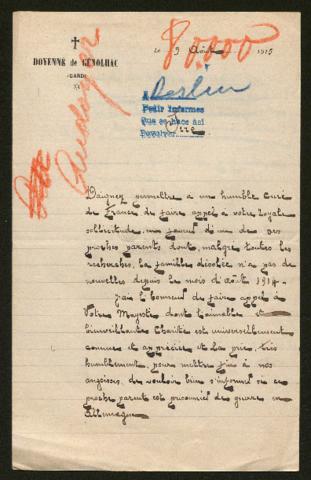 DOYENNE de GÉNOLHAC
(GARD)
le 9 Août 1915
80.000
Berlin
Pedir informes
Que se hace asi
Sire
Daignez permettre à un humble Curé
de France de faire appel à votre loyale
sollicitude, en faveur d'un de ses
proches parents dont, malgré toutes les
recherches, la famille désolée n'a pas de
nouvelles depuis le mois d'août 1914.
J'ai l'honneur de faire appel à
Votre Majesté dont l'aimable et
bienveillante Charité est universellement
connue et appréciée et La prie, très
humblement, pour mettre fin à nos
angoisses, de vouloir bien s'informer si ce
proche parent est prisonnier de guerre en
Allemagne